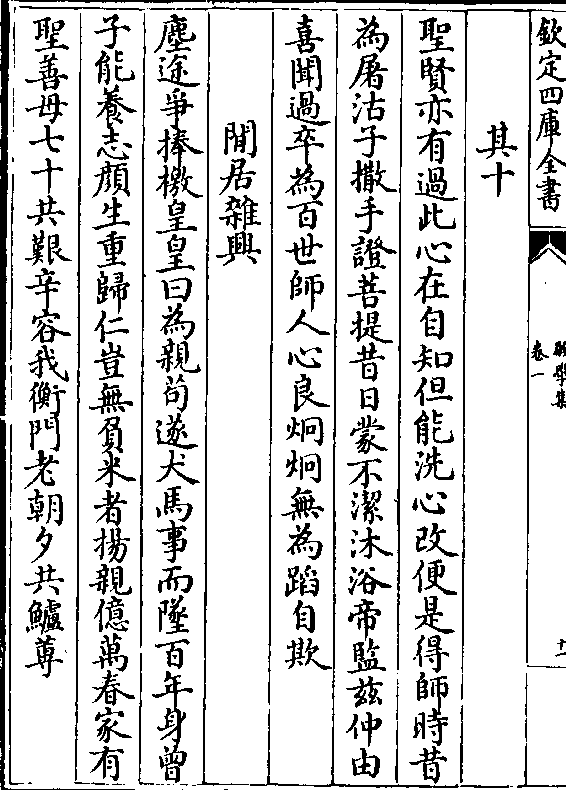 欽定四庫全書
卷一
其十
聖賢亦有過此心在自知但能洗心改便是得師時昔
為屠沽子撒手證菩提昔日蒙不潔沐浴帝監兹仲由
喜聞過卒為百世師人心良炯炯無為蹈自欺
閒居雜興
塵途爭捧檄皇皇曰為親苟遂犬馬事而墜百年身曾
子能養志顔生重歸仁豈無負米者揚親億萬春家有
聖善母七十共艱辛容我衡門老朝夕共鱸蓴